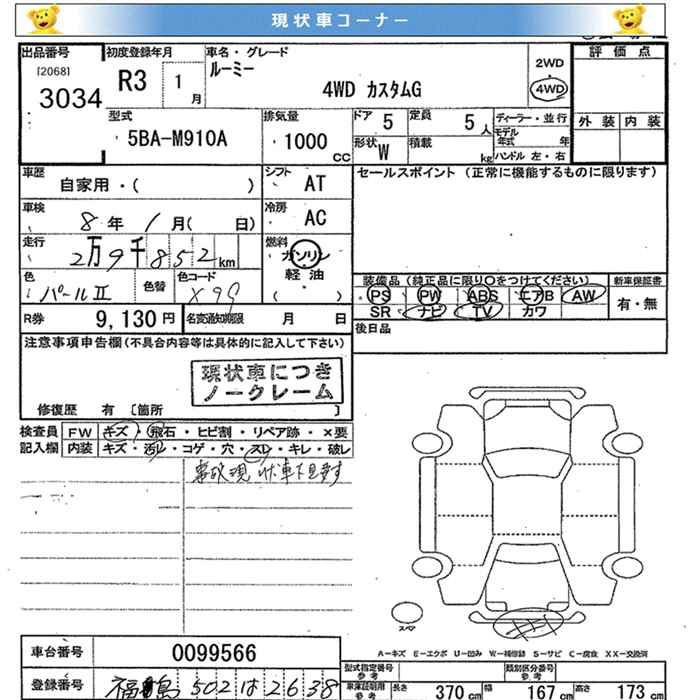 現状車コーナー
出品番号
[2068]
3034
初度登録年月
R3 1月
車名・グレード
ルーミー
4WD カスタムG
2WD
4WD
評価点
外装 内装
型式
5BA-M910A
排気量
1000 CC
ドア 5
定員 5人
形状 W
積載 kg
ディーラー・並行
モデル年式 年
ハンドル 左・右
車歴
自家用・( )
シフト AT
セールスポイント (正常に機能するものに限ります)
車検
8年 1月( 日)
冷房 AC
走行
2万9千852km
燃料
ガソリン
軽油
( )
色
パールII
色替
色コード
X99
装備品 (純正品に限り○をつけてください)
PS PW ABS エアB AW
SR ナビ TV カワ
新車保証書
有・無
R券 9,130円
名変通知期限 月 日
後日品
注意事項申告欄(不具合内容等は具体的に記入して下さい)
現状車につき
ノークレーム
修復歴 有 [箇所 ]
検査員
記入欄
FW キズ・飛石・ヒビ割・リペア跡・×要
内装 キズ・汚レ・コゲ・穴・スレ・キレ・破レ
事故現状車下見まず
スペア
A−キズ E−エクボ U−凹み W−補修跡 S−サビ C−腐食 XX−交換済
車台番号 0099566
登録番号 福島 502 は 2638
型式指定番号
参考
類別区分番号
参考
車庫証明用
参考
長さ 370cm 幅 167cm 高さ 173cm